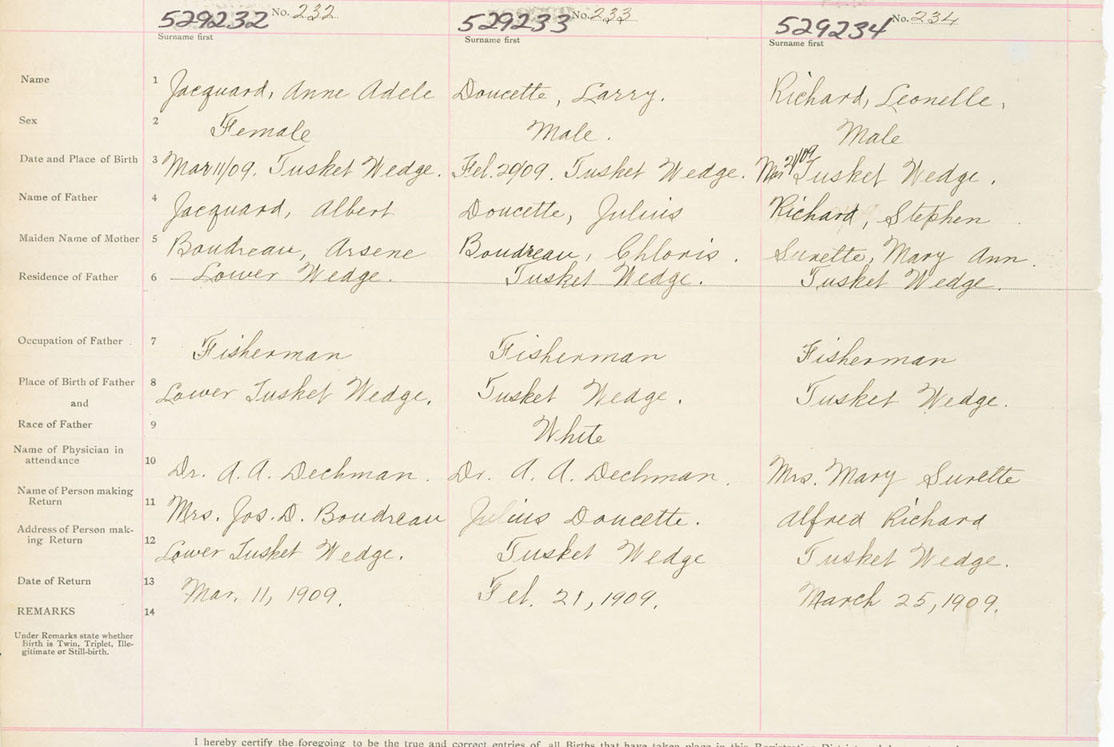 529232 No. 232 529233 No. 233 529234 No. 234
Surname first Surname first Surname first
Name 1 Jacquard, Anne Adele Doucette, Larry. Richard, Leonelle,
Sex 2 Female Male. Male
Date and Place of Birth 3 Mar 11/09. Tusket Wedge. Feb. 20/09. Tusket Wedge. Mar 21/09 Tusket Wedge.
Name of Father 4 Jacquard, Albert Doucette, Julius Richard, Stephen
Maiden Name of Mother 5 Boudreau, Arsene Boudreau, Chloris. Surette, Mary Ann.
Residence of Father 6 Lower Wedge. Tusket Wedge. Tusket Wedge.
Occupation of Father 7 Fisherman Fisherman Fisherman
Place of Birth of Father 8 Lower Tusket Wedge. Tusket Wedge. Tusket Wedge.
and
Race of Father 9 White
Name of Physician in
attendance 10 Dr. A. A. Dechman. Dr. A. A. Dechman. Mrs. Mary Surette
Name of Person making
Return 11 Mrs. Jos. D. Boudreau Julius Doucette. Alfred Richard
Address of Person mak-
ing Return 12 Lower Tusket Wedge. Tusket Wedge Tusket Wedge.
Date of Return 13 Mar. 11, 1909. Feb. 21, 1909. March 25, 1909.
REMARKS 14
Under Remarks state whether
Birth is Twin, Triplet, Ille-
gitimate or Still-birth.
I hereby certify the foregoing to be the true and correct entries of all Births that have taken place in this Registration District